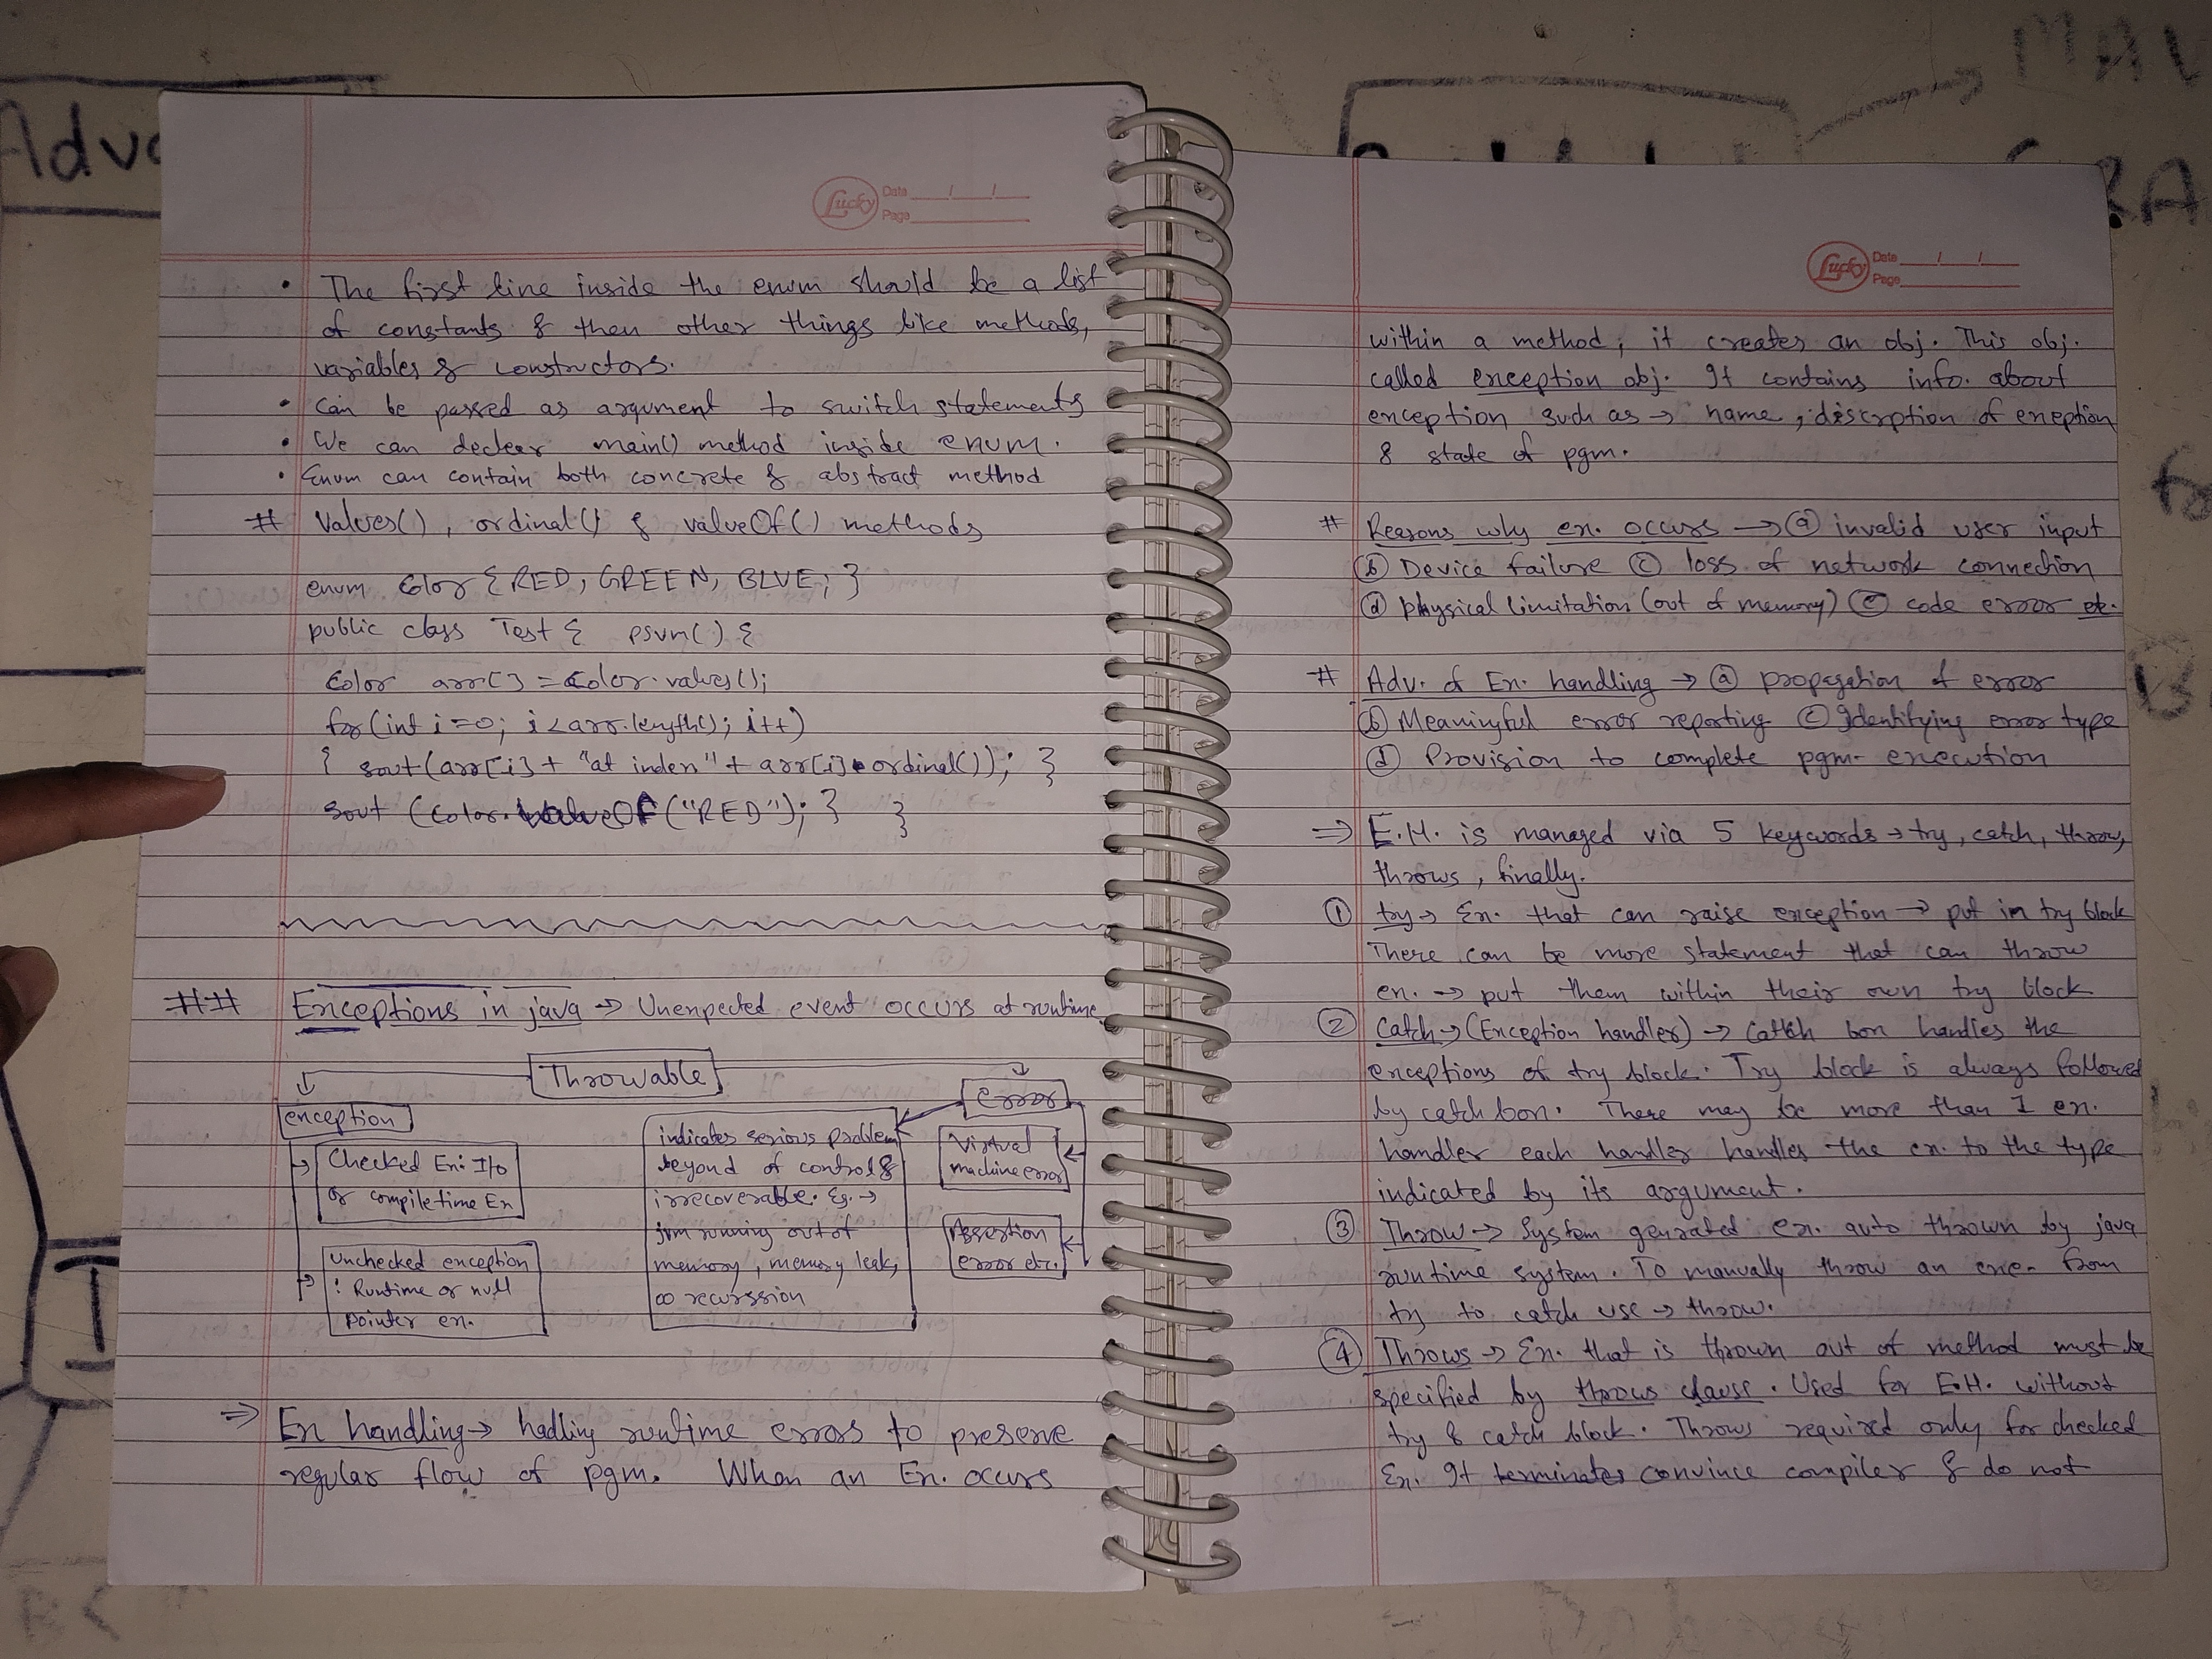 Adv
MAV
Lucky
Date / /
Page
• The first line inside the enum should be a list
of constants & then other things like methods,
variables & constructors.
• Can be passed as argument to switch statements
• We can declear main() method inside enum.
• Enum can contain both concrete & abstract method
# Values(), ordinal() & valueOf() methods
enum Color {RED, GREEN, BLUE; }
public class Test { psvm() {
Color arr[] = Color.values();
for(int i=0; i<arr.length(); i++)
{ sout(arr[i] + "at index" + arr[i].ordinal()); }
sout (Color.valueOf("RED"); } }
## Exceptions in java → Unexpected event occurs at runtime
Throwable
exception
error
Checked Ex: I/o
or compiletime Ex
Unchecked exception
: Runtime or null
pointer ex.
indicates serious problem
beyond of control &
irrecoverable. Eg. →
jvm running out of
memory, memory leak,
∞ recurssion
Virtual
machine error
Assertion
error etc.
⇒ Ex handling → hadling runtime errors to preserve
regular flow of pgm. When an Ex. occurs
Lucky
Date / /
Page
within a method, it creates an obj. This obj.
called exception obj. It contains info. about
exception such as → name, discrption of exeption
& state of pgm.
# Reasons why ex. occurs → (a) invalid user input
(b) Device failure (c) loss of network connection
(d) physical limitation (out of memory) (e) code error etc.
# Adv. of Ex. handling → (a) propagation of error
(b) Meaningful error reporting (c) Identifying error type
(d) Provision to complete pgm execution
⇒ E.H. is managed via 5 keywords → try, catch, throw,
throws, finally.
① try → Ex. that can raise exception → put in try block
There can be more statement that can throw
ex. → put them within their own try block
② Catch → (Exception handler) → Catch box handles the
exceptions of try block. Try block is always followed
by catch box. There may be more than 1 ex.
handler each handler handles the ex. to the type
indicated by its argument.
③ Throw → System genrated ex. auto thrown by java
runtime system. To manually throw an exce. from
try to catch use → throw.
④ Throws → Ex. that is thrown out of method must be
specified by throws clause. Used for E.H. without
try & catch block. Throws required only for checked
Ex. It terminates convince compiler & do not